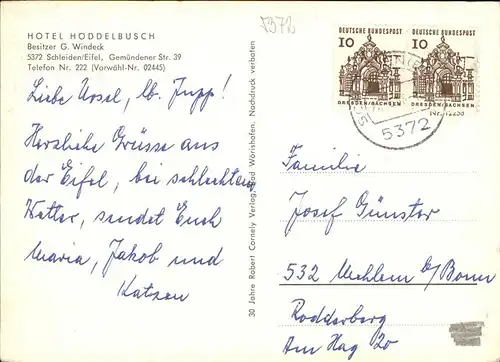 5372
HOTEL HODDELBUSCH
Besitzer G. Windeck
5372 Schleiden/Eifel, Gemündener Str. 39
Telefon Nr. 222 (Vorwähl-Nr. 02445)
Liebe Ursel, lb. Jupp!
Herzliche Grüsse aus
der Eifel, bei schlechtem
Wetter, sendet Euch
Maria, Jakob und
Katzen
30 Jahre Robert Cornely Verlag, Bad Wörishofen. Nachdruck verboten
DEUTSCHE BUNDESPOST
10
DRESDEN/SACHSEN
DEUTSCHE BUNDESPOST
10
DRESDEN/SACHSEN
5372
Familie
Josef Günster
532 Mehlem b/Bonn
Rodderberg
Am Hag 20